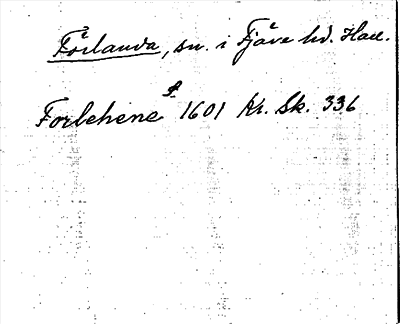 Förlanda, sn. i Fjäre hd. Hall.
Forlehene 1601 Kr. Sk. 336